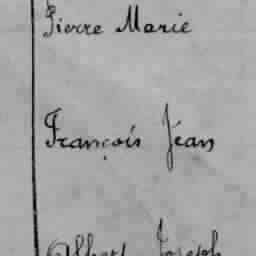 Pierre Marie
François Jean
Albert Joseph